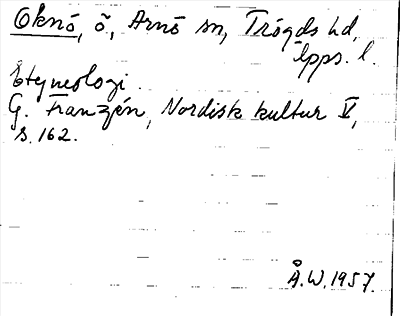 Oknö, ö, Arnö sn, Trögds hd,
Upps. l.
Etymologi
G. Franzén, Nordisk kultur V,
s. 162.
Å.W. 1957.